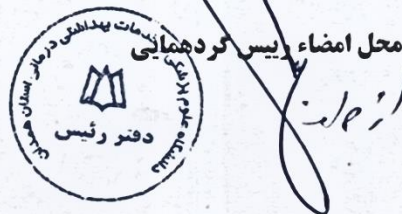 محل امضاء رییس گردهمایی
دانشگاه علوم پزشکی و خدمات بهداشتی درمانی استان همدان
دفتر رئیس